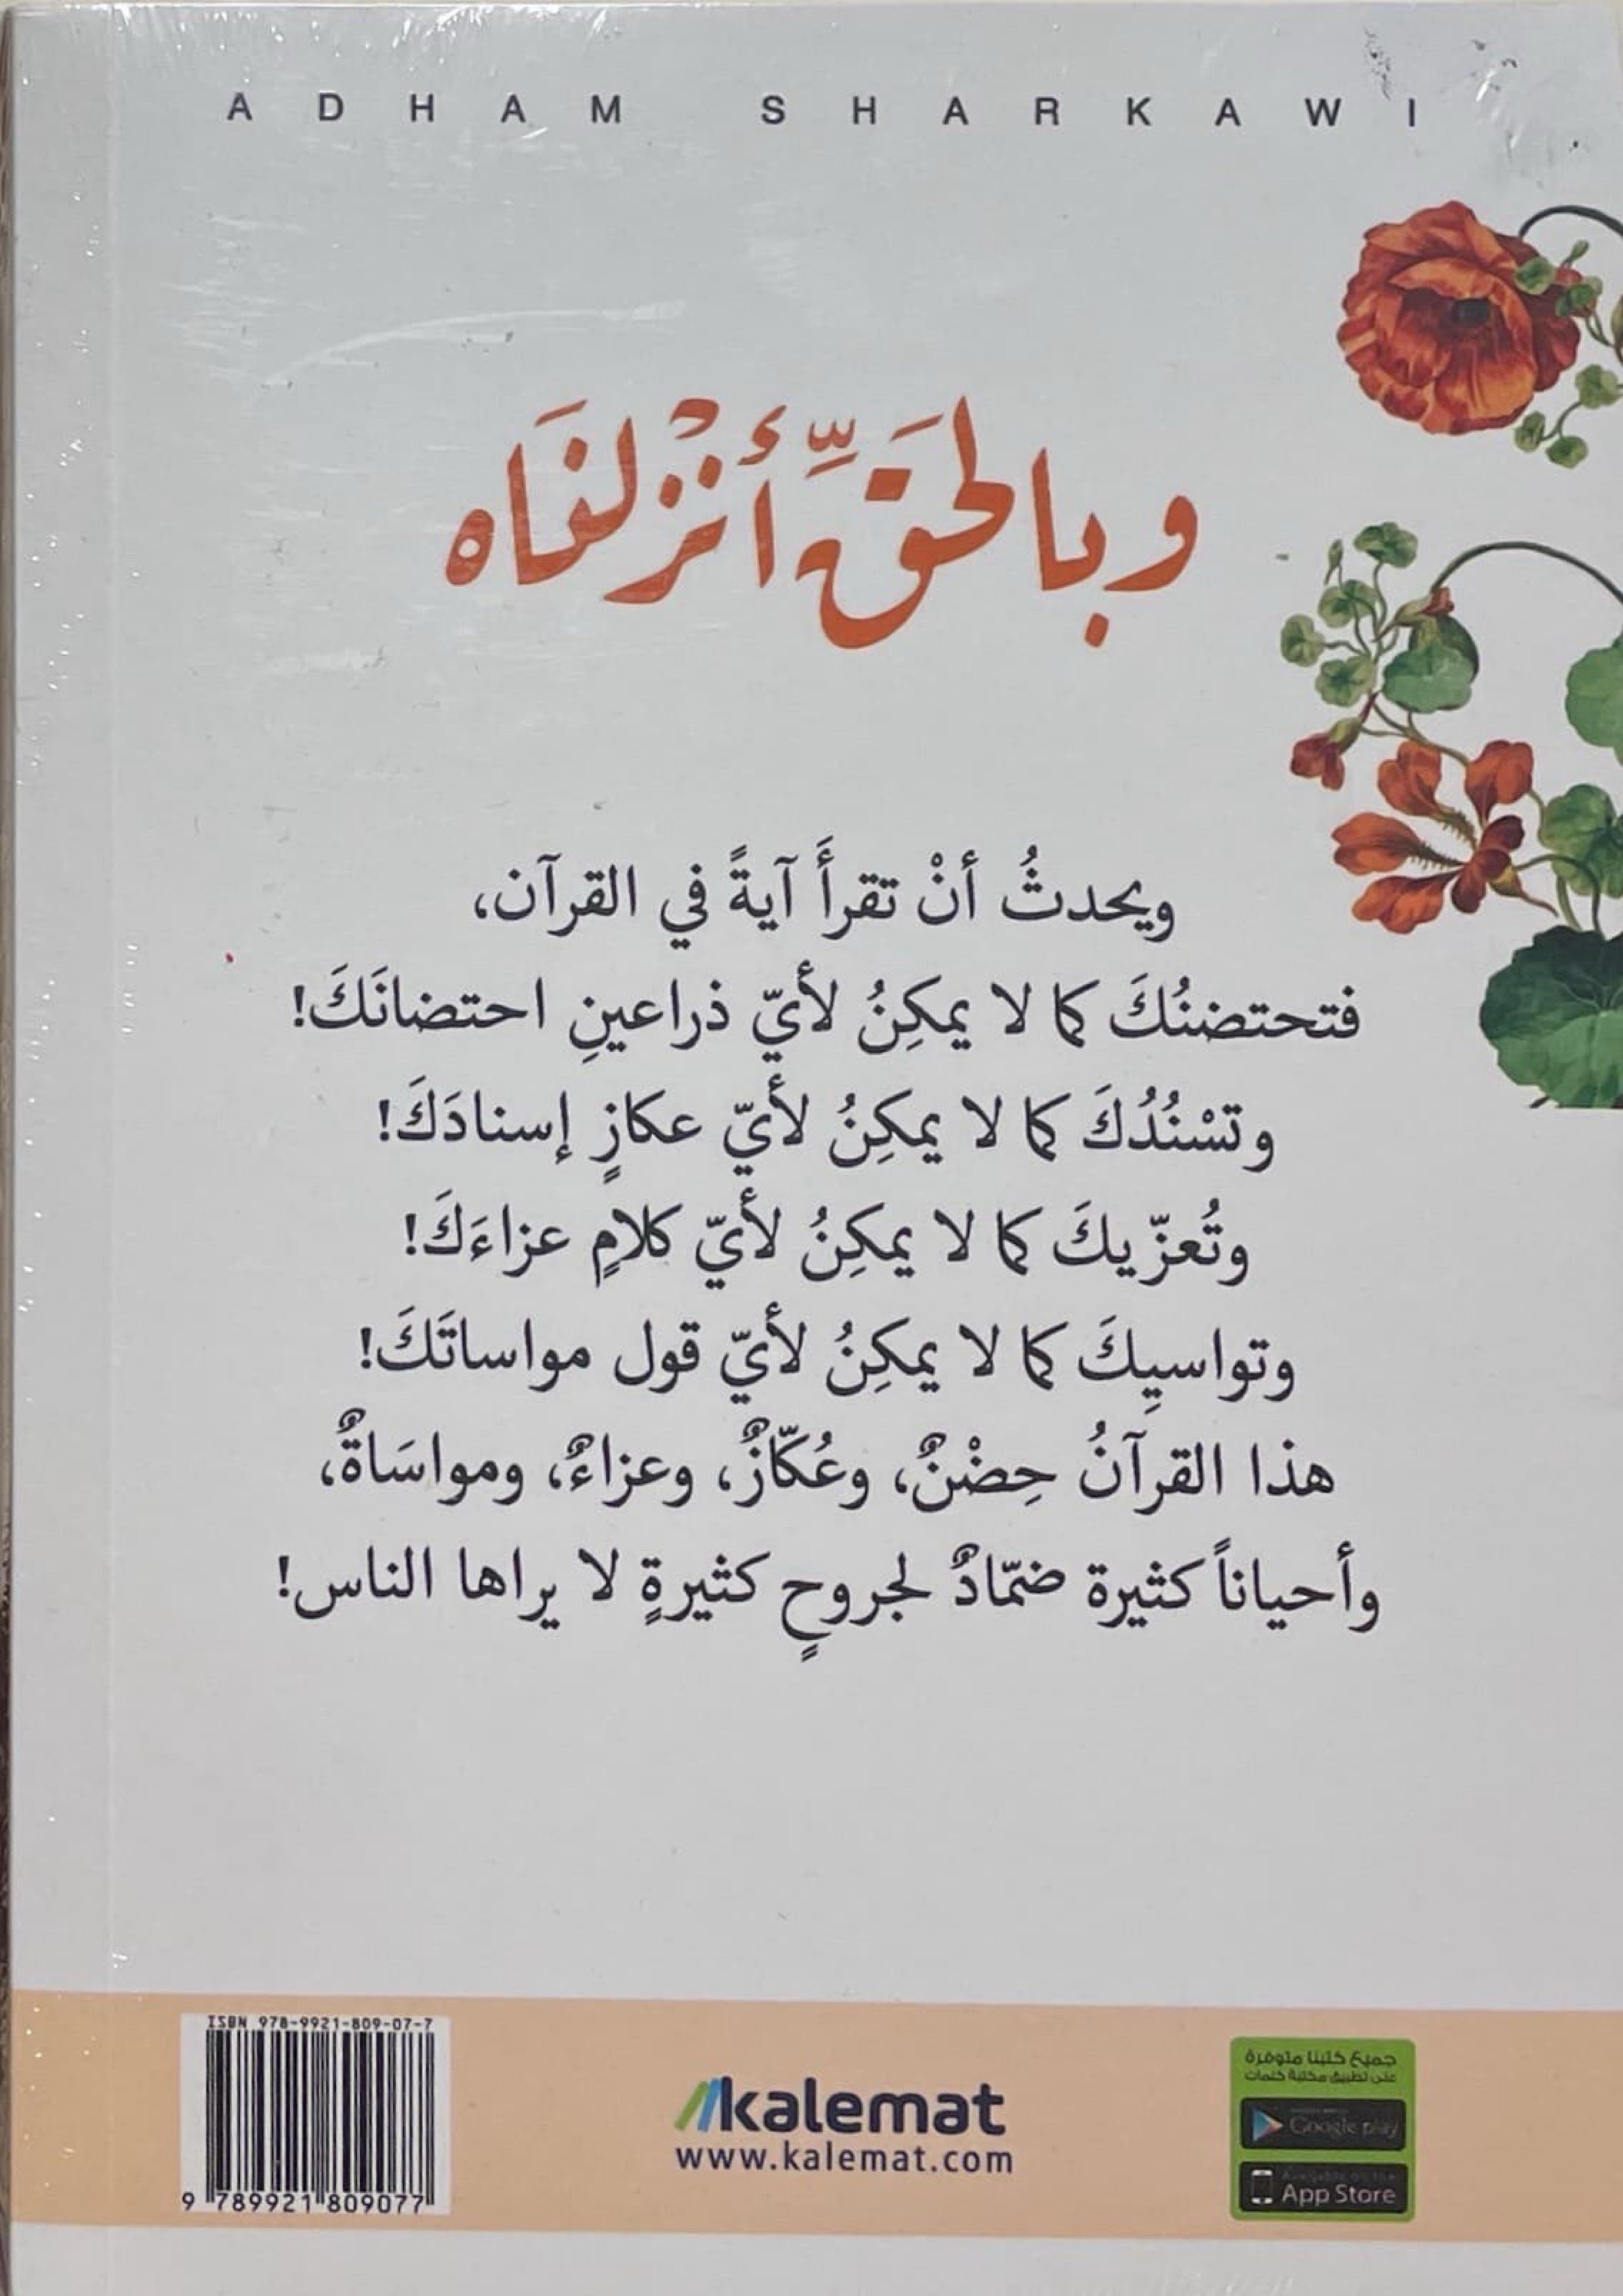 ADHAM SHARKAWI
وبالحَقِّ أنْزلنَاه
ويحدثُ أنْ تقرأَ آيةً في القرآن،
فتحتضنُكَ كما لا يمكِنُ لأيّ ذراعينِ احتضانَكَ!
وتسْنُدُكَ كما لا يمكِنُ لأيّ عكازٍ إسنادَكَ!
وتُعزّيكَ كما لا يمكِنُ لأيّ كلامٍ عزاءَكَ!
وتواسيِكَ كما لا يمكِنُ لأيّ قول مواساتَكَ!
هذا القرآنُ حِضْنٌ، وعُكّازٌ، وعزاءٌ، ومواسَاةٌ،
وأحياناً كثيرة ضمّادٌ لجروحٍ كثيرةٍ لا يراها الناس!
ISBN 978-9921-809-07-7
9 789921 809077
kalemat
www.kalemat.com
جميع كتبنا متوفرة
على تطبيق مكتبة كلمات
Google play
Available on the
App Store